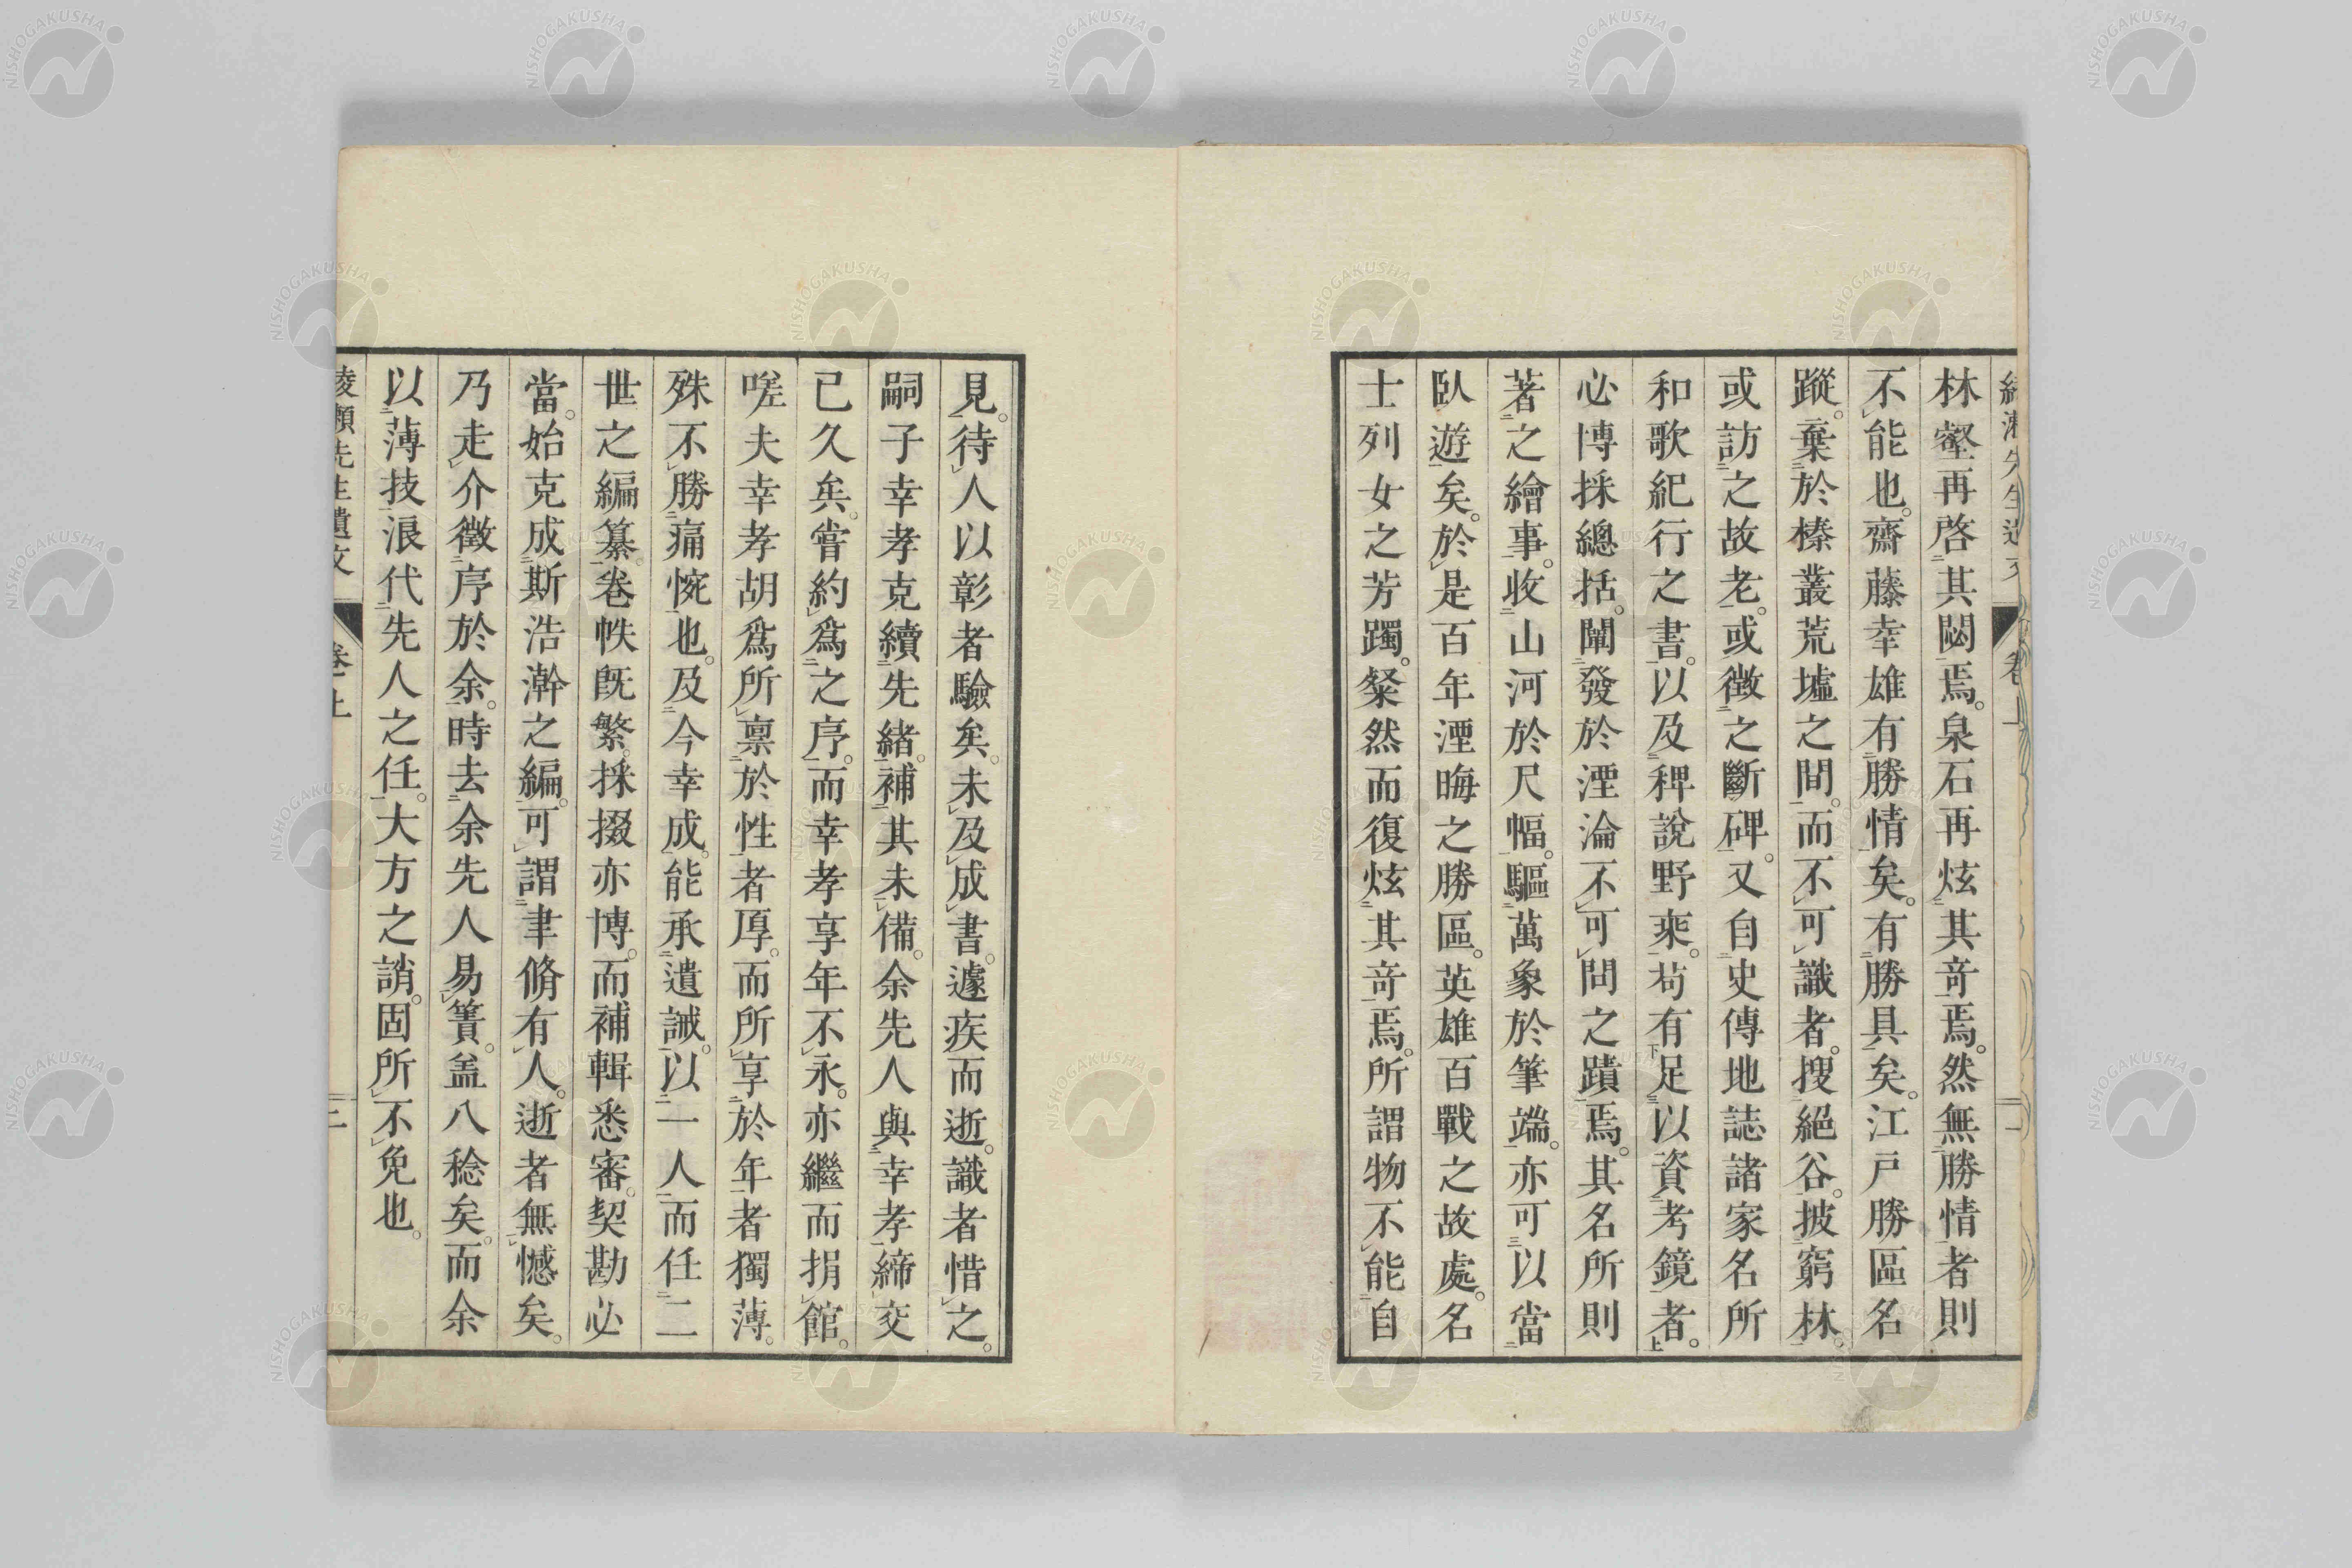 林壑再啓其閟焉。泉石再炫其奇焉。然無勝情者則
不能也。齋藤幸雄有勝情矣。有勝具矣。江戸勝區名
蹤。棄於榛叢荒墟之間。而不可識者。搜絕谷。披窮林。
或訪之故老。或徴之斷碑。又自史傳地誌諸家名所
和歌紀行之書。以及稗說野乘。苟有足以資考鏡者。
必博採總括。闡發於湮淪不可問之蹟焉。其名所則
著之繪事。收山河於尺幅。驅萬象於筆端。亦可以當
臥遊矣。於是百年湮晦之勝區。英雄百戰之故處。名
士列女之芳躅。粲然而復炫其奇焉。所謂物不能自
見。待人以彰者驗矣。未及成書。遽疾而逝。識者惜之。
嗣子幸孝克續先緒。補其未備。余先人與幸孝締交
已久矣。嘗約爲之序。而幸孝享年不永。亦繼而捐館。
嗟夫幸孝胡爲所禀於性者厚。而所享於年者獨薄。
殊不勝痛惋也。及今幸成。能承遺誡。以一人而任二
世之編纂。卷帙既繁。採掇亦博。而補輯悉審。契勘必
當。始克成斯浩瀚之編。可謂聿脩有人。逝者無憾矣。
乃走介徵序於余。時去余先人易簀。盖八稔矣。而余
以薄技浪代先人之任。大方之誚。固所不免也。
綾瀬先生遺文 卷上 二
NISHOGAKUSHA